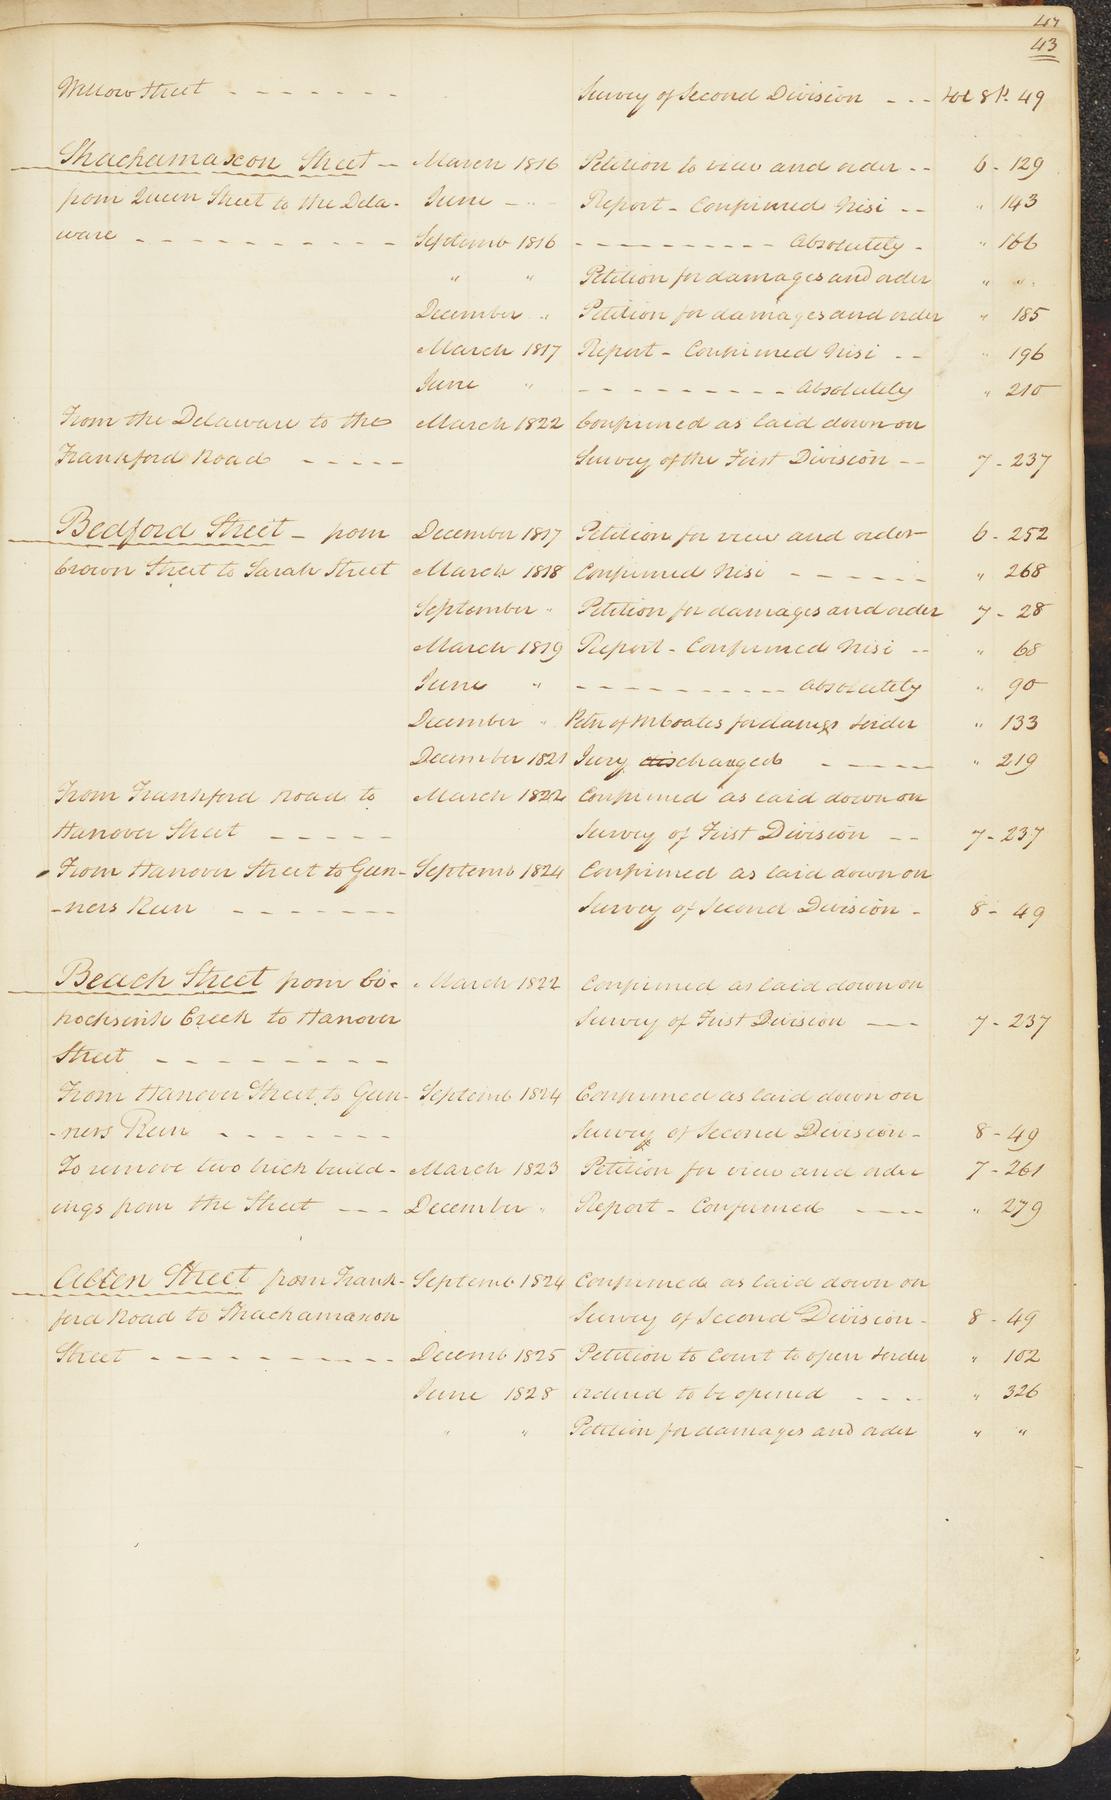 47
43
Willow Street - - - - - - - Survey of Second Division - - - Vol 8 P. 49
Shackamaxon Street - March 1816 Petition to view and order - - 6 - 129
from Queen Street to the Dela- June - - - Report - Confirmed Nisi - - " 143
ware - - - - - - - - - - Septemb 1816 - - - - - - - - - - Absolutely - " 166
" " Petition for damages and order " "
December " Petition for damages and order " 185
March 1817 Report - Confirmed Nisi - - " 196
June " - - - - - - - - - - Absolutely " 210
From the Delaware to the March 1822 Confirmed as laid down on
Frankford Road - - - - - Survey of the First Division - - 7 - 237
Bedford Street - from December 1817 Petition for view and order 6 - 252
Brown Street to Sarah Street March 1818 Confirmed Nisi - - - - - - " 268
September " Petition for damages and order 7 - 28
March 1819 Report - Confirmed Nisi - - " 68
June " - - - - - - - - - - Absolutely " 90
December " Petn of for damags &order " 133
December 1821 Jury discharged - - - - - " 219
From Frankford Road to March 1822 Confirmed as laid down on
Hanover Street - - - - - Survey of First Division - - 7 - 237
From Hanover Street to Gun- Septemb 1824 Confirmed as laid down on
-ners Run - - - - - - - Survey of Second Division - 8 - 49
Beach Street from Co- March 1822 Confirmed as laid down on
hocksink Creek to Hanover Survey of First Division - - - 7 - 237
Street - - - - - - - - -
From Hanover Street to Gun- Septemb 1824 Confirmed as laid down on
-ners Run - - - - - - - Survey of Second Division - 8 - 49
To remove two brick build- March 1823 Petition for view and order 7 - 261
ings from the Street - - - December " Report - Confirmed - - - - " 279
Allen Street from Frank- Septemb 1824 Confirmed as laid down on
ford Road to Shackamaxon Survey of Second Division - 8 - 49
Street - - - - - - - - - - Decemb 1825 Petition to Court to open &order " 102
June 1828 ordered to be opened - - - - " 326
" " Petition for damages and order " "